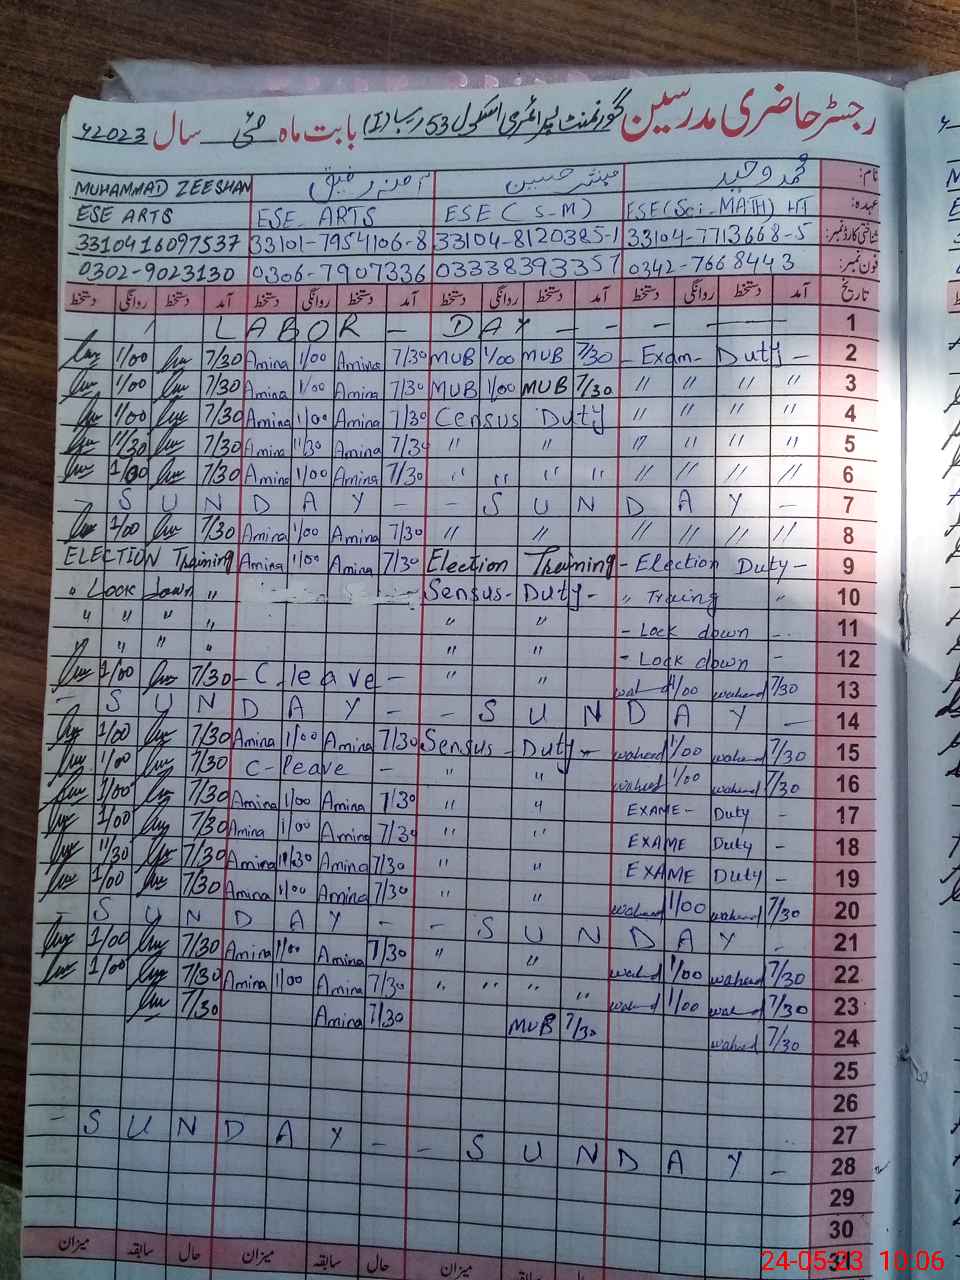 رجسٹر حاضری مدرسین گورنمنٹ پرائمری اسکول 53 ر ب (I) بابت ماہ مئی سال 2023ء
نام: محمد وحید مبشر حسین آمنہ رفیق MUHAMMAD ZEESHAN
عہدہ: ESE (Sci-MATH) HT ESE (S-M) ESE ARTS ESE ARTS
شناختی کارڈ نمبر: 33104-7713668-5 33104-8120385-1 33101-7954106-8 3310416097537
فون نمبر: 0342-7668443 03338393357 0306-7907336 0302-9023130
تاریخ آمد دستخط روانگی دستخط آمد دستخط روانگی دستخط آمد دستخط روانگی دستخط آمد دستخط روانگی دستخط
LABOR - DAY - - - 1
1/00 7/30 Amina 1/00 Amina 7/30 MUB 1/00 MUB 7/30 - Exam - Duty - 2
1/00 7/30 Amina 1/00 Amina 7/30 MUB 1/00 MUB 7/30 " " " " 3
1/00 7/30 Amina 1/00 Amina 7/30 Census Duty " " " " 4
11/30 7/30 Amina 11/30 Amina 7/30 " " " " " " 5
1/00 7/30 Amina 1/00 Amina 7/30 " " " " " " " " 6
- SUNDAY - - SUNDAY - 7
1/00 7/30 Amina 1/00 Amina 7/30 " " " " " " 8
ELECTION Training Amina 1/00 Amina 7/30 Election Training - Election Duty - 9
" Lock down " Sensus - Duty - " Traing " 10
" " " " " " - Lock down - 11
" " " " " - Lock down - 12
1/00 7/30 - C. leave - " " wahed 1/00 waheed 7/30 13
- SUNDAY - - SUNDAY - 14
1/00 7/30 Amina 1/00 Amina 7/30 Sensus - Duty - waheed 1/00 waheed 7/30 15
1/00 7/30 C - leave - " " waheed 1/00 waheed 7/30 16
1/00 7/30 Amina 1/00 Amina 7/30 " " EXAME - Duty - 17
1/00 7/30 Amina 1/00 Amina 7/30 " " EXAME Duty - 18
11/30 7/30 Amina 11/30 Amina 7/30 " " EXAME Duty - 19
1/00 7/30 Amina 1/00 Amina 7/30 " " waheed 1/00 waheed 7/30 20
- SUNDAY - - SUNDAY - 21
1/00 7/30 Amina 1/00 Amina 7/30 " " waheed 1/00 waheed 7/30 22
1/00 7/30 Amina 1/00 Amina 7/30 " " " " waheed 1/00 waheed 7/30 23
7/30 Amina 7/30 MUB 7/30 waheed 7/30 24
25
26
27
- SUNDAY - - SUNDAY - 28
29
30
31
میزان سابقہ حال میزان سابقہ حال میزان سابقہ حال
24-05-23 10:06